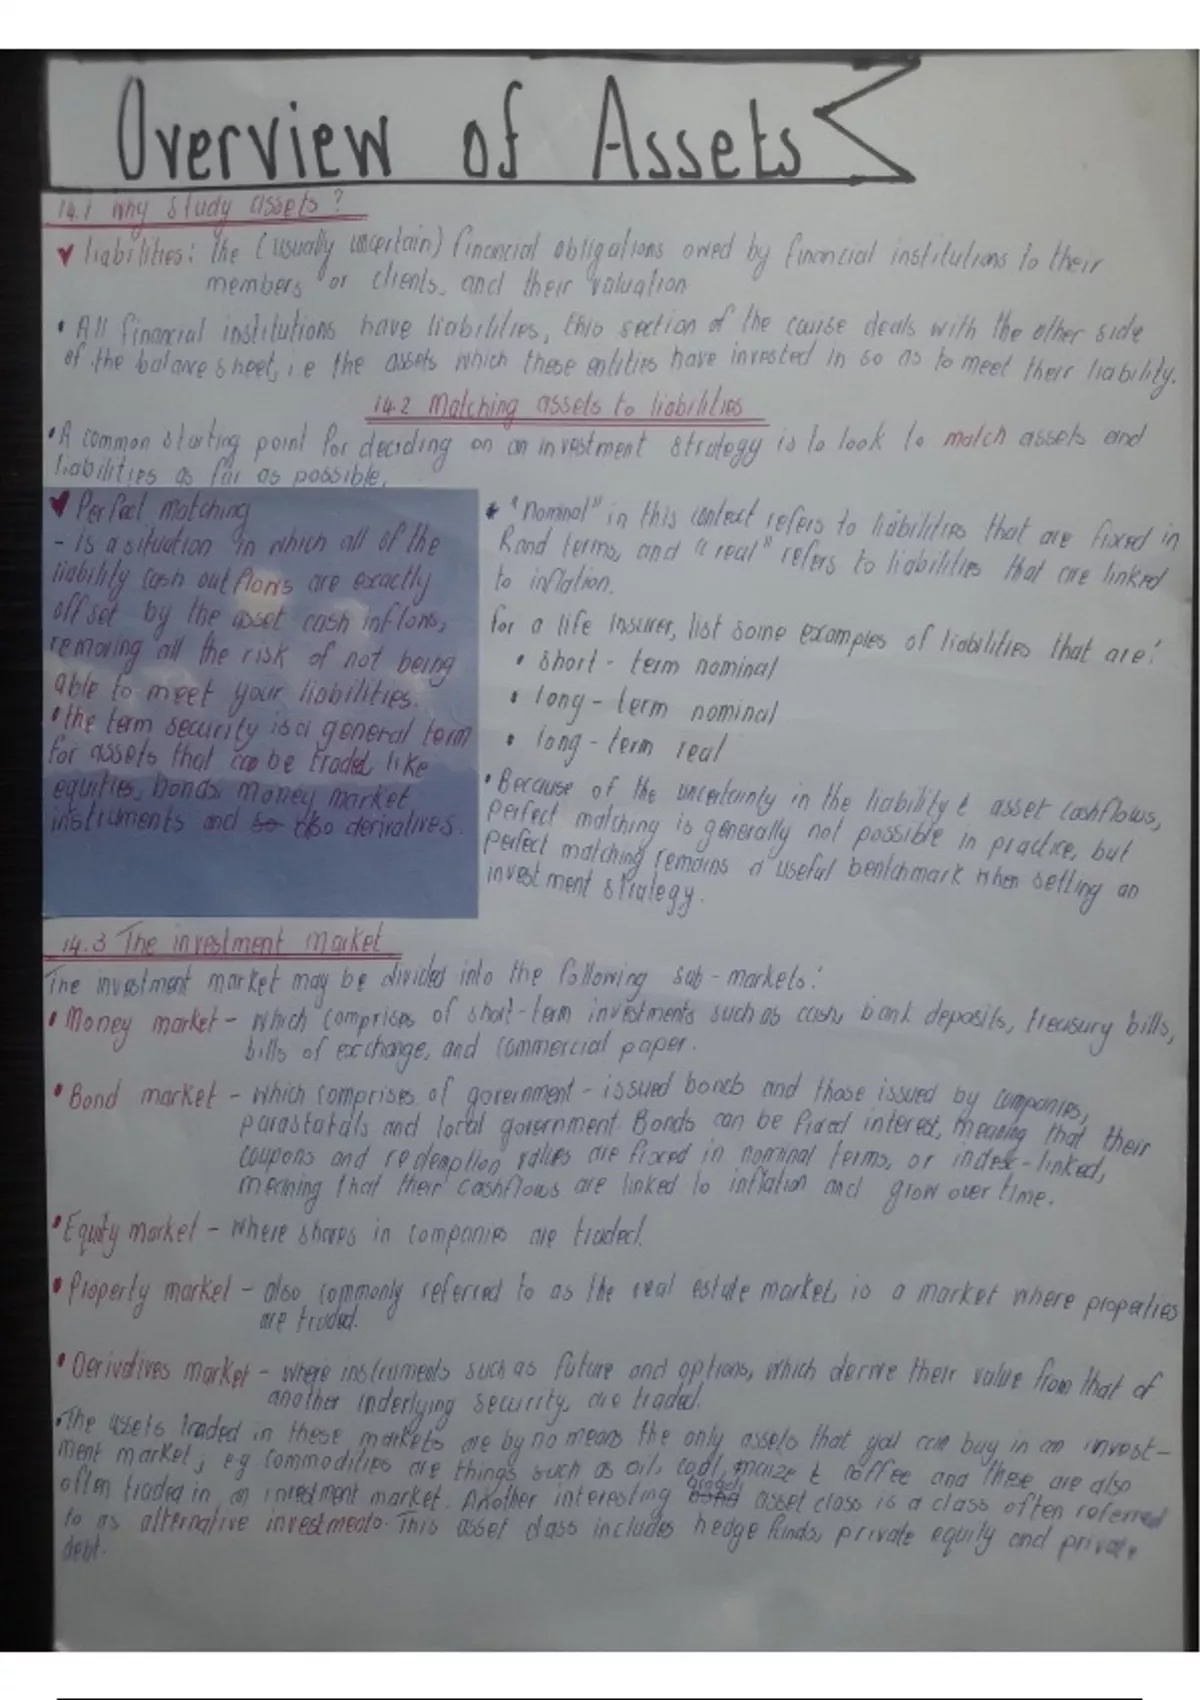 Overview of Assets
14.1 Why study assets?
liabilities: The (usually uncertain) financial obligations owed by financial institutions to their
members or clients, and their valuation
• All financial institutions have liabilities, this section of the course deals with the other side
of the balance sheet, i.e the assets which these entities have invested in so as to meet their liability.
14.2 Matching assets to liabilities
• A common starting point for deciding on an investment strategy is to look to match assets and
liabilities as far as possible.
Perfect matching
- is a situation in which all of the
liability cash outflows are exactly
offset by the asset cash inflows,
removing all the risk of not being
able to meet your liabilities.
• the term security is a general term
for assets that can be traded, like
equities, bonds, money market
instruments and so also derivatives.
* "Nominal" in this context refers to liabilities that are fixed in
Rand terms, and "real" refers to liabilities that are linked
to inflation.
for a life insurer, list some examples of liabilities that are:
• short-term nominal
• long-term nominal
• long-term real
• Because of the uncertainty in the liability & asset cashflows,
perfect matching is generally not possible in practice, but
perfect matching remains a useful benchmark when setting an
investment strategy.
14.3 The investment market
The investment market may be divided into the following sub-markets:
• Money market - which comprises of short-term investments such as cash, bank deposits, treasury bills,
bills of exchange, and commercial paper.
• Bond market - which comprises of government-issued bonds and those issued by companies,
parastatals and local government. Bonds can be fixed interest, meaning that their
coupons and redemption values are fixed in nominal terms, or index-linked,
meaning that their cashflows are linked to inflation and grow over time.
• Equity market - where shares in companies are traded.
• Property market - also commonly referred to as the real estate market, is a market where properties
are traded.
• Derivatives market - where instruments such as future and options, which derive their value from that of
another inderlying security, are traded.
• The assets traded in these markets are by no means the only assets that you can buy in an invest-
ment market; e.g commodities are things such as oil, coal, maize & coffee and these are also
often traded in an investment market. Another interesting broad asset class is a class often referred
to as alternative investments. This asset class includes hedge funds, private equity and private
debt.